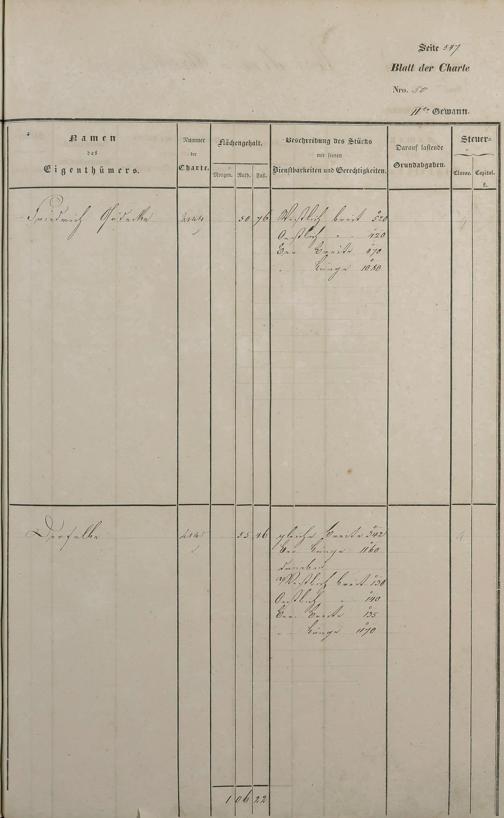 Seite 597
Blatt der Charte
Nro. 50
IIte Gewann.
Namen
des
Eigenthümers.
Nummer
der
Charte.
Flächengehalt.
Morgen. Ruth. Fuß.
Beschreibung des Stücks
mit seinen
Dienstbarkeiten und Gerechtigkeiten.
Darauf lastende
Grundabgaben.
Steuer-
Classe. Capital.
fl.
Friedrich
50 76 Westlich breit 520
Oestlich 420
Die Breite 470
Länge 1080
4
Derselbe
55 46 gleiche Breite 342
Die Länge 1160
daneben
Westlich breit 130
Oestlich 140
Die Breite 135
Länge 1170
4
1 06 22